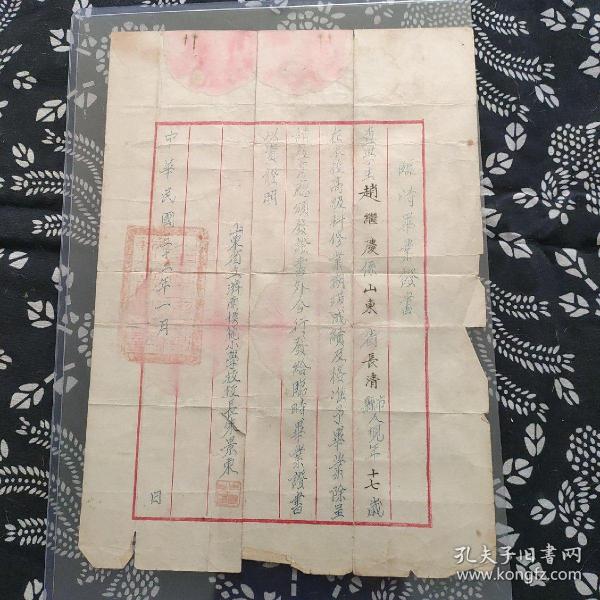 臨時畢業證書
查學生趙繼慶係山東省長清市縣人現年十七歲
在本校高級科修業期滿成績及格准予畢業除呈
發給臨時畢業證書
以資證明
山東省立濟南模範小學校校長朱景東
中華民國三十五年一月 日
孔夫子旧书网
www.kongfz.com